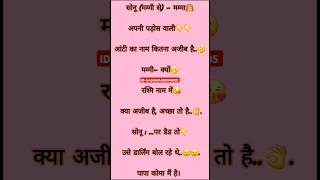 सोनू (मम्मी से) - मम्मा
अपनी पड़ोस वाली
आंटी का नाम कितना अजीब है..
मम्मी- क्यों
रश्मि नाम में
क्या अजीब है, अच्छा तो है..
सोनू : ...पर डैड तो
उसे डार्लिंग बोल रहे थे..
पापा कोमा मैं है।
क्या अजीब है, अच्छा तो है..